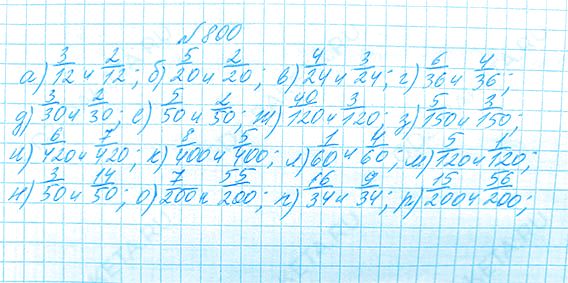 №800
а) 3/12 и 2/12; б) 5/20 и 2/20; в) 4/24 и 3/24; г) 6/36 и 4/36;
д) 3/30 и 2/30; е) 5/50 и 2/50; ж) 40/120 и 3/120; з) 5/150 и 3/150;
и) 6/420 и 7/420; к) 8/400 и 5/400; л) 1/60 и 4/60; м) 5/120 и 1/120;
н) 3/50 и 14/50; о) 7/200 и 55/200; п) 16/34 и 9/34; р) 15/200 и 56/200;